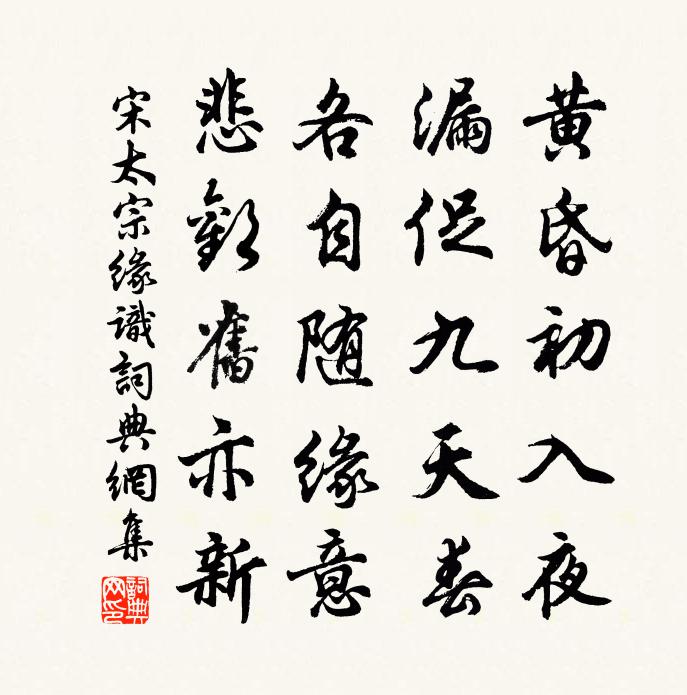 黃昏初入夜
漏促九天春
各自随缘意
悲歡舊亦新
宋太宗缘識詞典網集
詞典網印